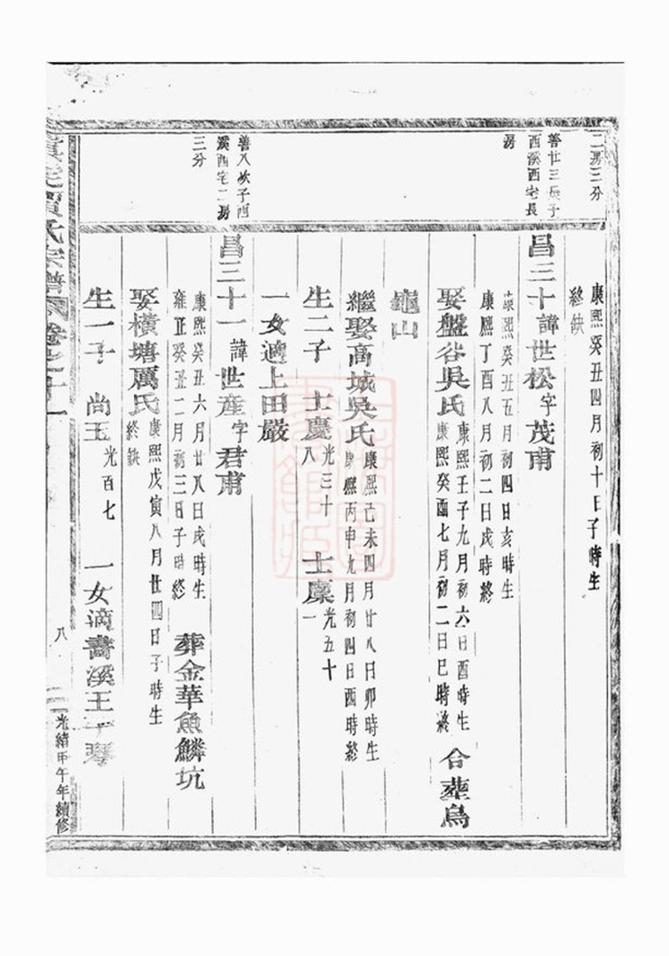 二房三分
善廿三長子
西溪西宅長
房
善八次子西
溪西宅二房
三分
康熙癸丑四月初十日子時生
終缺
昌三十諱世松字茂甫
康熙癸丑五月初四日亥時生
康熙丁酉八月初二日戌時終
娶盤谷吳氏
康熙壬子九月初六日酉時生
康熙癸酉七月初二日巳時終
合葬烏
龜山
繼娶高城吳氏
康熙己未四月廿八日卯時生
康熙丙申九月初四日酉時終
生二子 士慶
光三十
八
士廩
光五十
一
一女適上田嚴
昌三十一諱世產字君甫
康熙癸丑六月廿八日戌時生
雍正癸丑二月初三日子時終
葬金華魚鱗坑
娶橫塘厲氏
康熙戊寅八月廿四日子時生
終缺
生一子 尚玉
光百七
一女適畵溪王子琴
氏宗譜
八
光緒甲午年續修